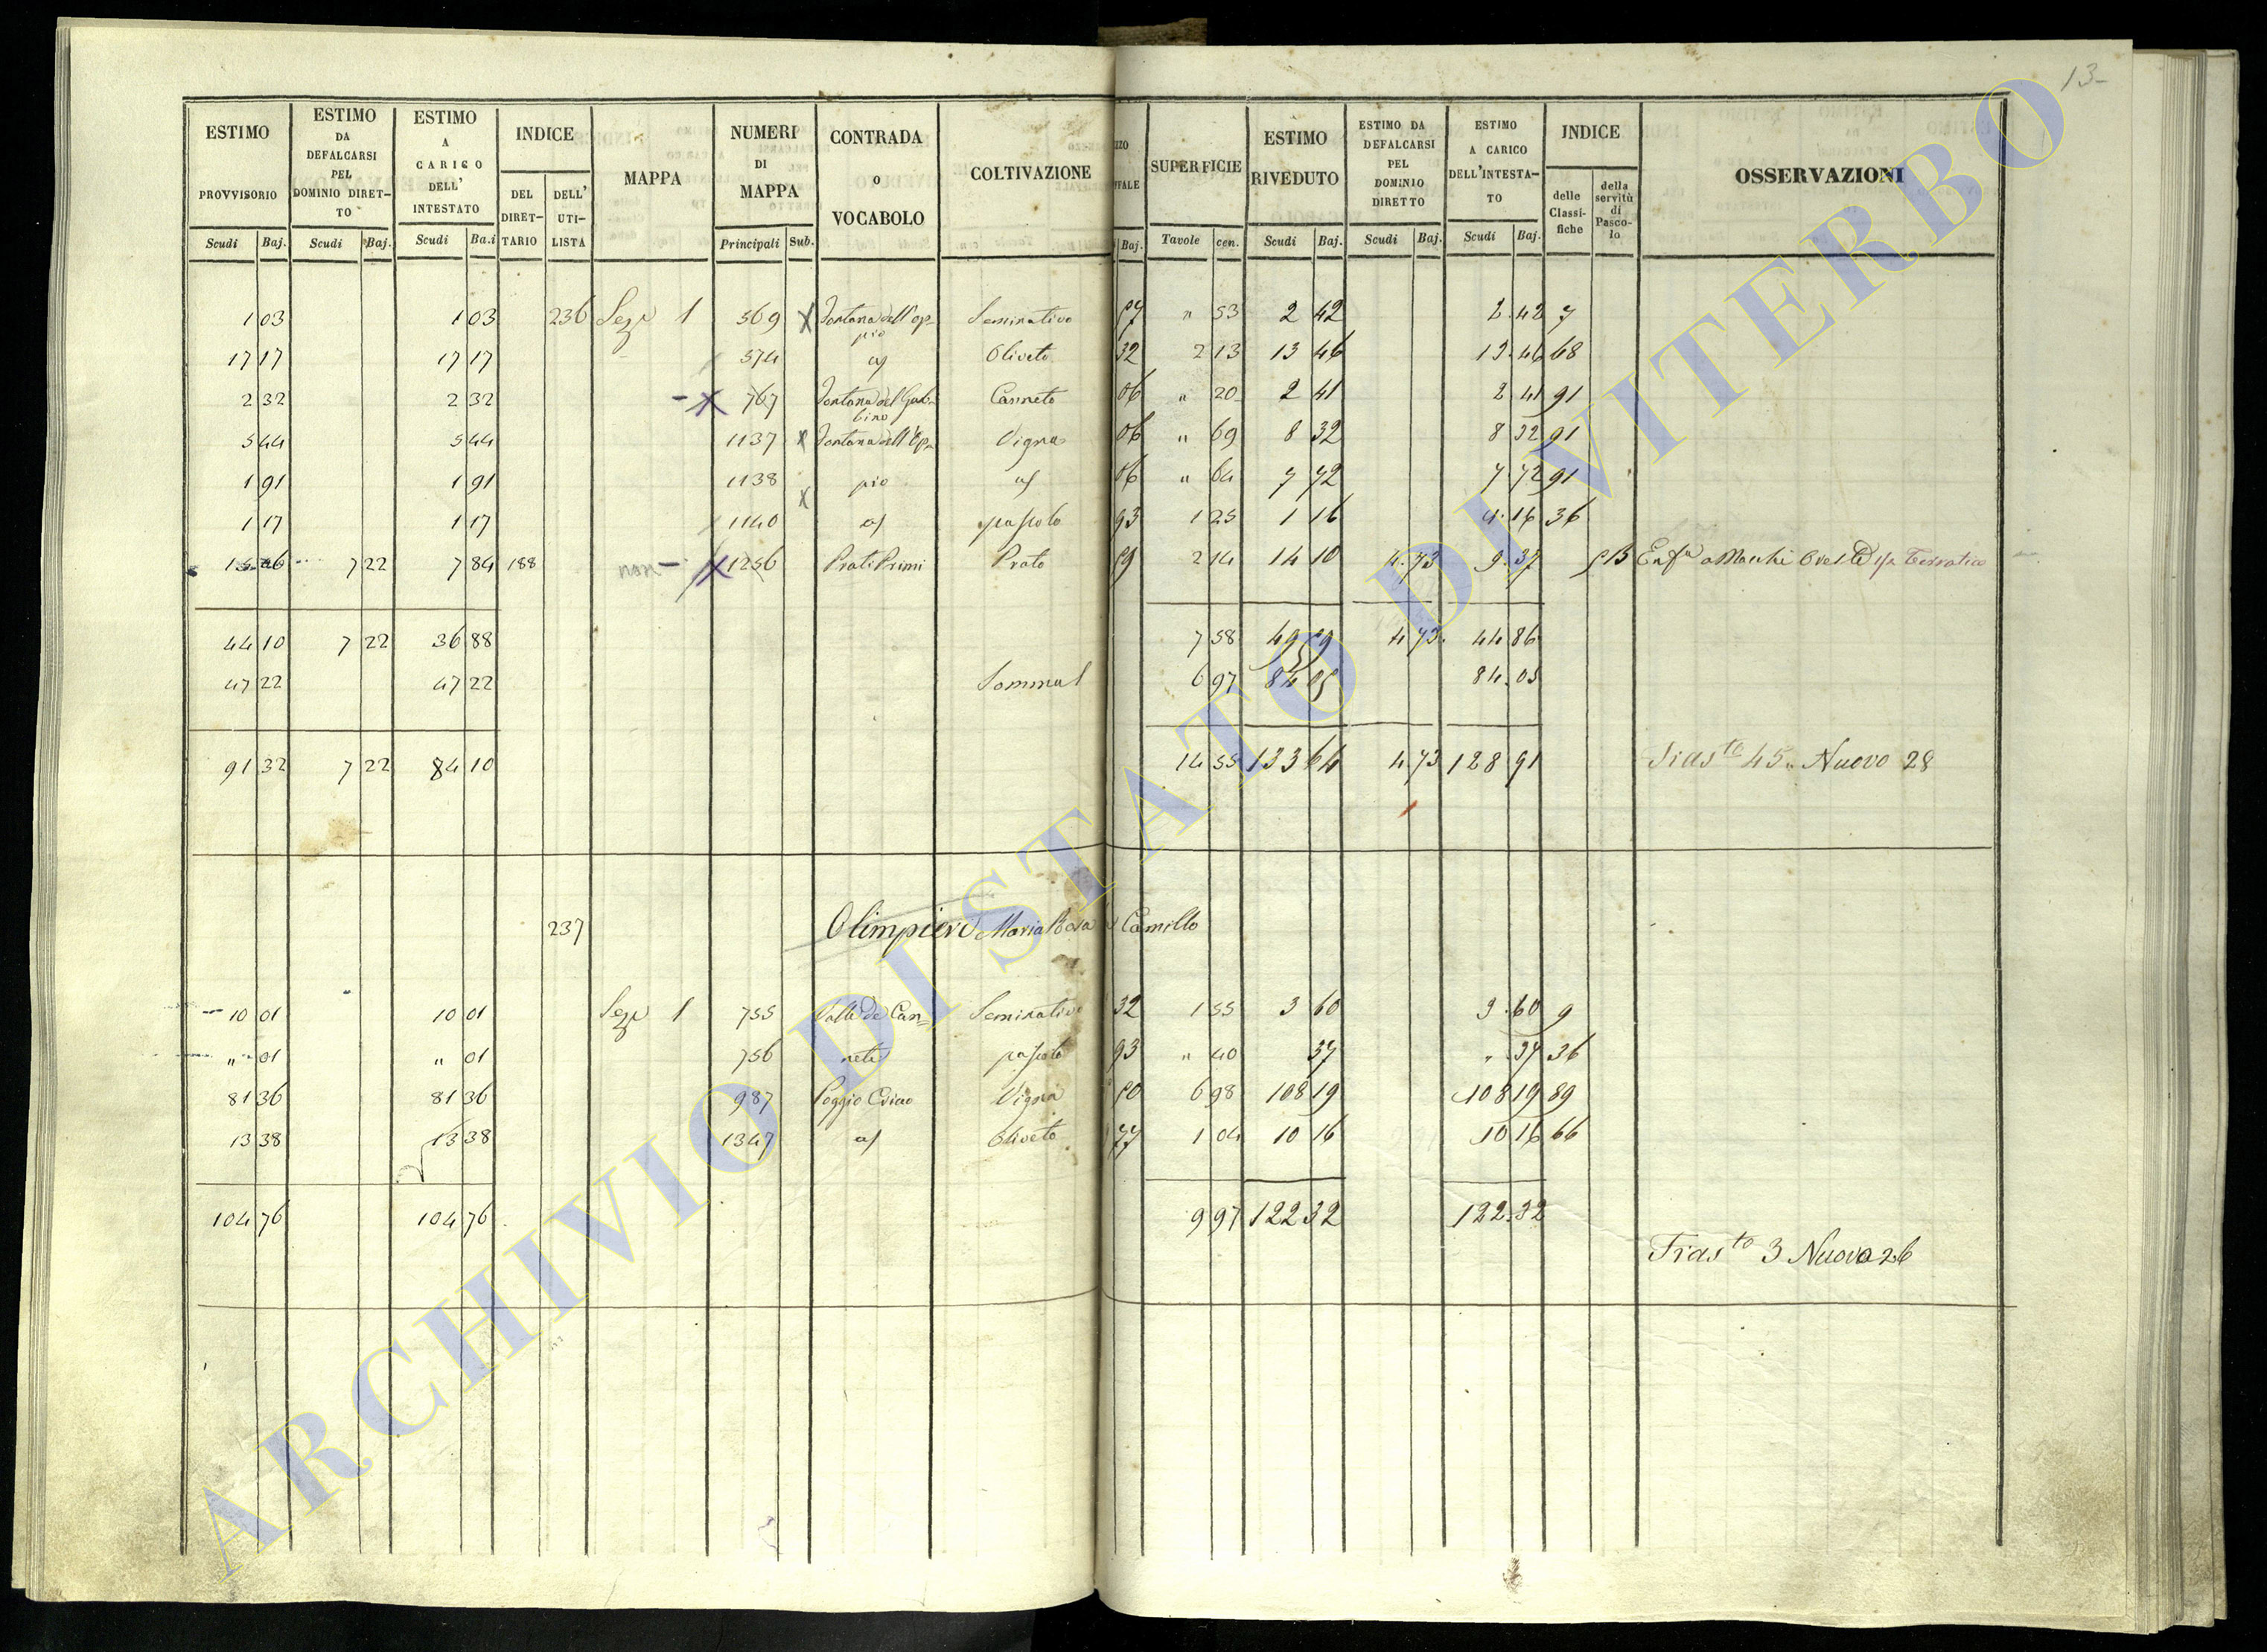 13-
ESTIMO PROVVISORIO | ESTIMO DA DEFALCARSI PEL DOMINIO DIRETTO | ESTIMO A CARICO DELL' INTESTATO | INDICE | MAPPA | NUMERI DI MAPPA | CONTRADA O VOCABOLO | COLTIVAZIONE | ZZO FFALE | SUPERFICIE | ESTIMO RIVEDUTO | ESTIMO DA DEFALCARSI PEL DOMINIO DIRETTO | ESTIMO A CARICO DELL'INTESTATO | INDICE | OSSERVAZIONI
Scudi Baj. | Scudi Baj. | Scudi Ba.i | DEL DIRETTARIO | DELL' UTILISTA | Principali Sub. | Baj. | Tavole cen. | Scudi Baj. | Scudi Baj. | Scudi Baj. | delle Classifiche | della servitù di Pascolo
1 03 1 03 236 Sezn 1 569 X Fontana dell'op= Seminativo 97 " 53 2 42 2.42 7
pio
17 17 17 17 574 a/ Oliveto 32 2 13 13 46 13.46 68
2 32 2 32 -X 767 Fontana del Gab= Canneto 06 " 20 2 41 2 41 91
bino
5 44 5 44 1137 X Fontana dell'Op= Vigna 06 " 69 8 32 8 32 91
1 91 1 91 1138 X pio a/ 06 " 64 7 72 7 72 91
1 17 1 17 1140 a/ pascolo 93 1 25 1 16 1.16 36
15 06 7 22 7 84 188 - X 1256 Prati Primi Prato 59 2 14 14 10 4.73 9.37
44 10 7 22 36 88 7 58 49 59 4 73. 44 86
47 22 47 22 Somma 6 97 84 05 84.05
91 32 7 22 84 10 14 55 133 64 4 73 128 91 Nuovo 28
237 Olimpieri Maria Rosa Camillo
10 01 10 01 Sezn 1 755 Valle de Can= Seminativo 32 1 55 3 60 3.60 9
" 01 " 01 756 neti pascolo 93 " 40 37 ".37 36
81 36 81 36 987 Poggio Vigna 50 6 98 108 19 108 19 89
13 38 13 38 1347 a/ Oliveto 77 1 04 10 16 10 16 66
104 76 104 76 9 97 122 32 122.32
3 Nuovo 26
ARCHIVIO DI STATO DI VITERBO